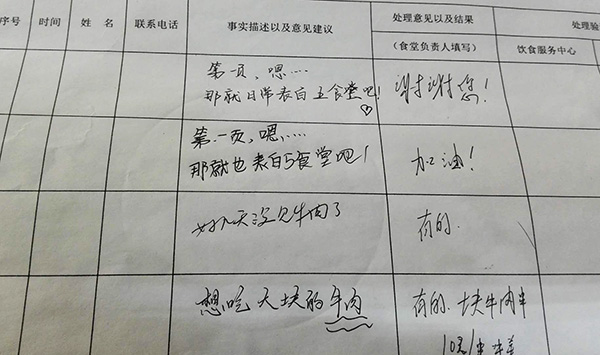 序号 时间 姓名 联系电话 事实描述以及意见建议 处理意见以及结果 处理验
（食堂负责人填写） 饮食服务中心
第一页，嗯……
那就日常表白五食堂吧！♡
谢谢您！
第一页，嗯……
那就也表白5食堂吧！
加油！
好几天没见牛肉了
有的.
想吃大块的牛肉
有的.块牛肉